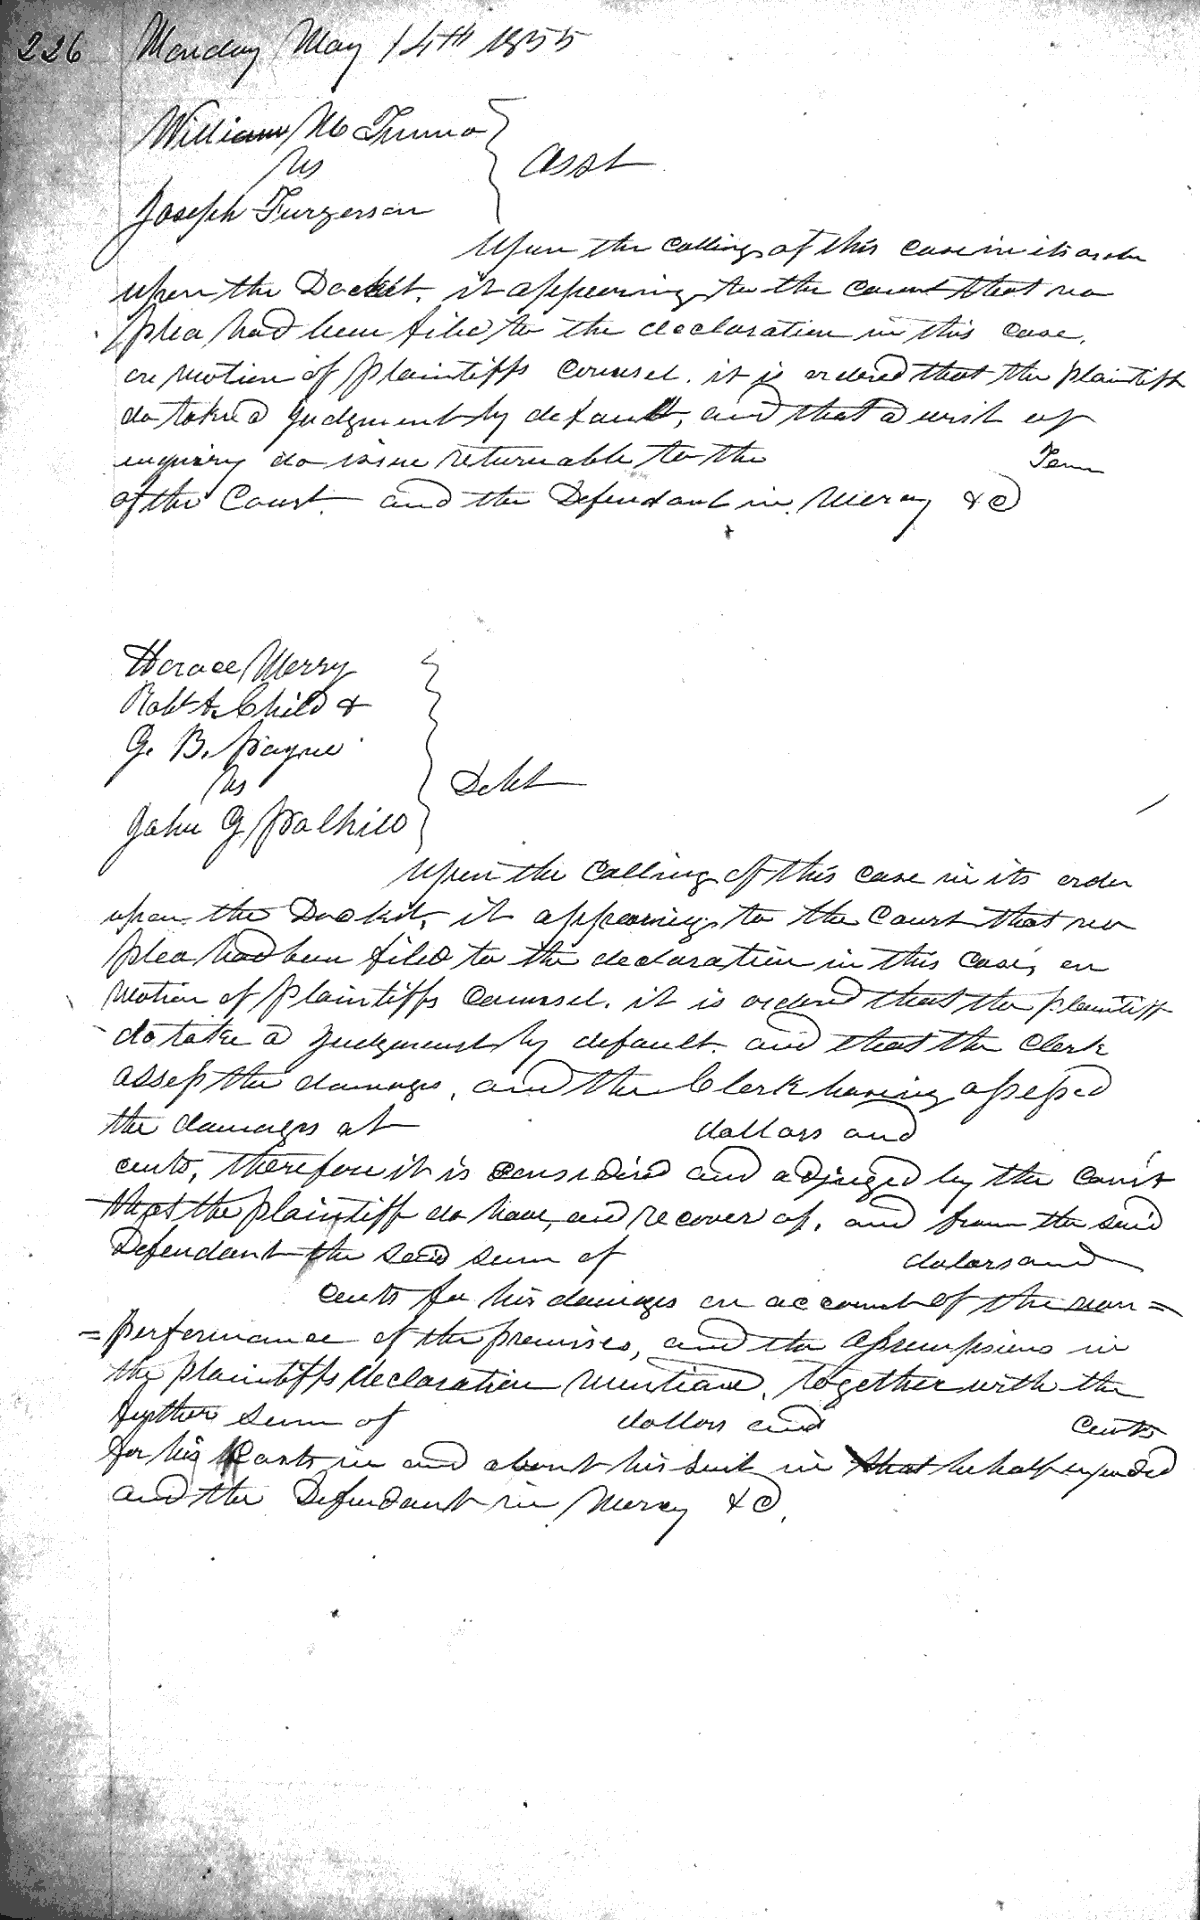 226 Monday May 14th 1855
William M
vs
Asst
Joseph Furgerson
Upon the calling of this case in its order
upon the Docket, it appearing to the court that no
plea had been filed to the declaration in this case,
on motion of plaintiffs counsel. it is ordered that the plaintiff
do take a judgment by default, and that a writ of
inquiry do issue returnable to the Term
of the Court. and the Defendant in Mercy &c
Horace Merry
Robt A. Child &
G. B. Payne
vs
Debt
John G
Upon the calling of this case in its order
upon the Docket, it appearing to the Court that no
plea had been filed to the declaration in this case, on
motion of plaintiffs counsel. it is ordered that the plaintiff
do take a judgment by default. and that the Clerk
assess the damages, and the Clerk having assessed
the damages at dollars and
cents, therefore it is considered and adjuged by the court
that the plaintiff do have, and recover of, and from the said
Defendant the said sum of dolars and
cents for his damages on account of the non=
=performance of the premises, and the in
the plaintiffs declaration mentiand, together with the
further sum of dollars and cents
for his Costs in and about his suit in that behalf expended
and the Defendant in Mercy &c,